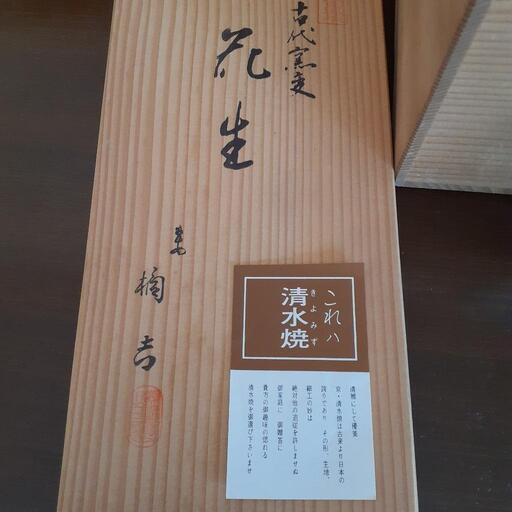 古代窯変
花生
橘吉
これハ
きよみず
清水焼
清雅にして優美
京・清水焼は古来より日本の
誇りであり その形、生地、
細工の妙は
絶対他の追従を許しませぬ
御家庭に 御贈答に
貴方の御趣味の溢れる
清水焼を御選び下さいませ